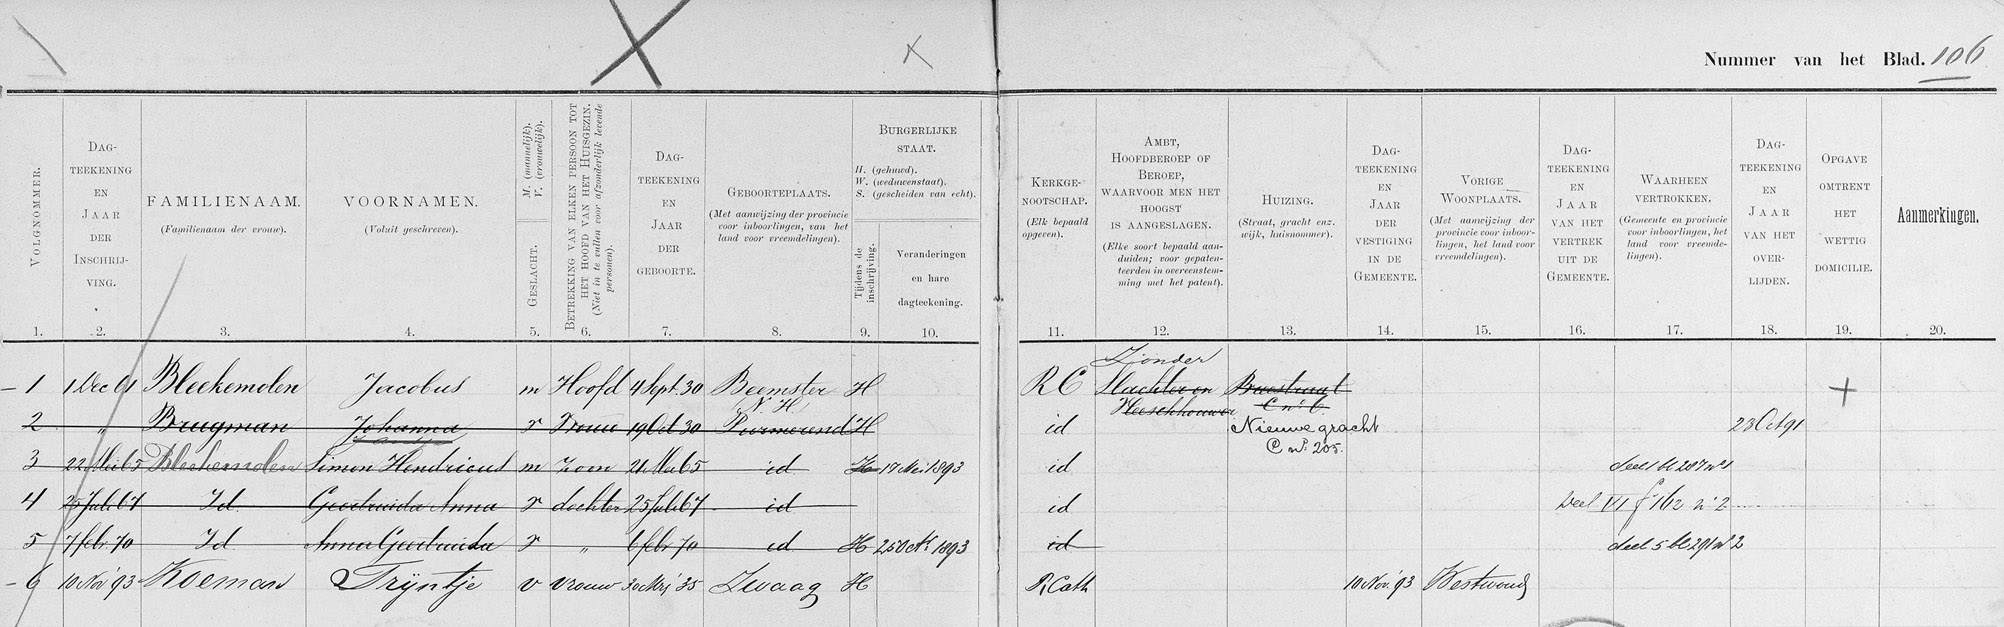 Nummer van het Blad. 106
VOLGNOMMER.
DAG-
TEEKENING
EN
JAAR
DER
INSCHRIJ-
VING.
FAMILIENAAM.
(Familienaam der vrouw).
VOORNAMEN.
(Voluit geschreven).
M. (mannelijk).
V. (vrouwelijk).
GESLACHT.
BETREKKING VAN ELKEN PERSOON TOT
HET HOOFD VAN HET HUISGEZIN.
(Niet in te vullen voor afzonderlijk levende
personen).
DAG-
TEEKENING
EN
JAAR
DER
GEBOORTE.
GEBOORTEPLAATS.
(Met aanwijzing der provincie
voor inboorlingen, van het
land voor vreemdelingen).
BURGERLIJKE
STAAT.
H. (gehuwd).
W. (weduwenstaat).
S. (gescheiden van echt).
Tijdens de
inschrijving.
Veranderingen
en hare
dagteekening.
KERKGE-
NOOTSCHAP.
(Elk bepaald
opgeven).
AMBT,
HOOFDBEROEP OF
BEROEP,
WAARVOOR MEN HET
HOOGST
IS AANGESLAGEN.
(Elke soort bepaald aan-
duiden; voor gepaten-
teerden in overeenstem-
ming met het patent).
HUIZING.
(Straat, gracht enz.
wijk, huisnommer).
DAG-
TEEKENING
EN
JAAR
DER
VESTIGING
IN DE
GEMEENTE.
VORIGE
WOONPLAATS.
(Met aanwijzing der
provincie voor inboor-
lingen, het land voor
vreemdelingen).
DAG-
TEEKENING
EN
JAAR
VAN HET
VERTREK
UIT DE
GEMEENTE.
WAARHEEN
VERTROKKEN.
(Gemeente en provincie
voor inboorlingen, het
land voor vreemde-
lingen).
DAG-
TEEKENING
EN
JAAR
VAN HET
OVER-
LIJDEN.
OPGAVE
OMTRENT
HET
WETTIG
DOMICILIE.
Aanmerkingen.
1. 2. 3. 4. 5. 6. 7. 8. 9. 10. 11. 12. 13. 14. 15. 16. 17. 18. 19. 20.
Zonder
1 1 Dec 61 Bleekemolen Jacobus m Hoofd 4 Sept. 30 Beemster H R C Slachter en Breestraat +
N. H. Vleeschhouwer C no 6
2 " Brugman Johanna v Vrouw 19 Oct 30 Purmerend H id Nieuwe gracht 23 Oct 91
C no. 205.
3 22 Mei 65 Bleekemolen Simon Hendricus m zoon 21 Mei 65 id H 17 Mei 1893 id deel 1 bl 287 no 1
4 25 Juli 67 Id Geertruida Anna v dochter 25 Juli 67 id id Deel VI f 162 no 2
5 7 febr 70 Id Anna Geertruida v " 6 febr 70 id H 25 Oct 1893 id deel 5 bl 291 no 2
6 10 Nov '93 Koeman Trijntje v vrouw 30 Mrt '35 Zwaag H R Cath 10 Nov. '93 Westwoud